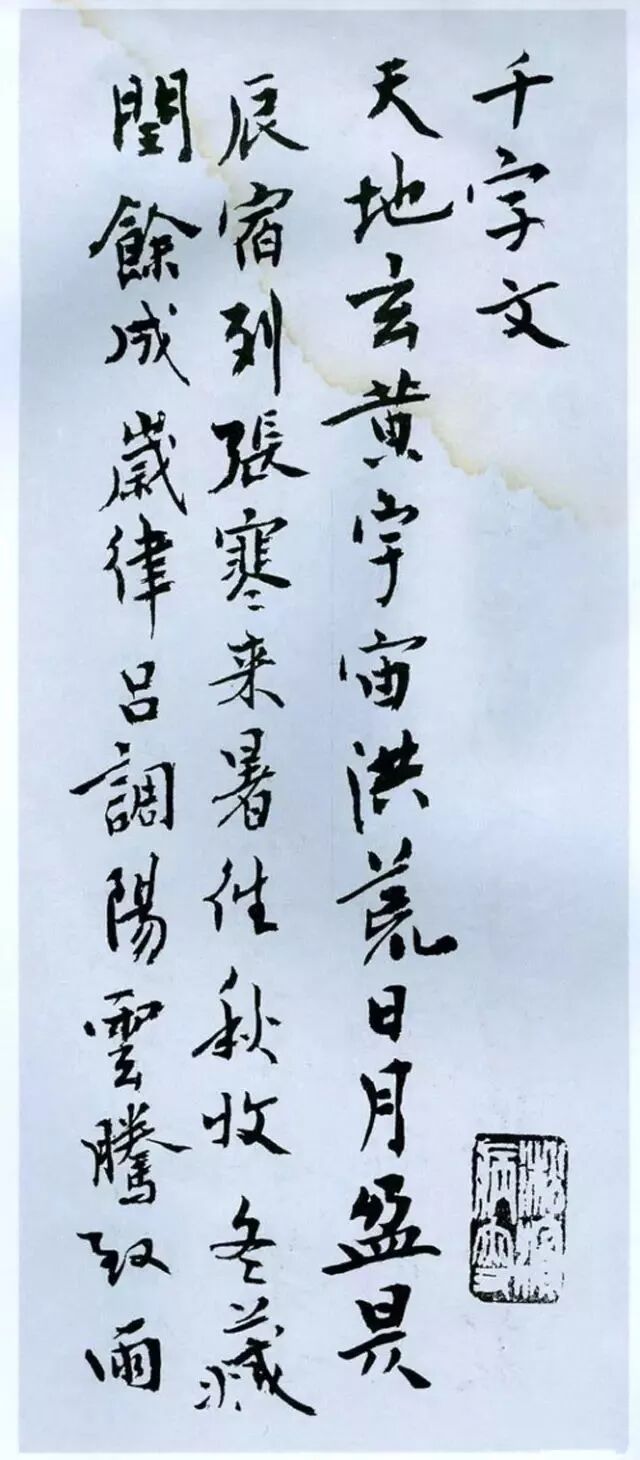 千字文
天地玄黄宇宙洪荒日月盈昃
辰宿列張寒来暑往秋收冬藏
閏餘成歲律呂調陽雲騰致雨